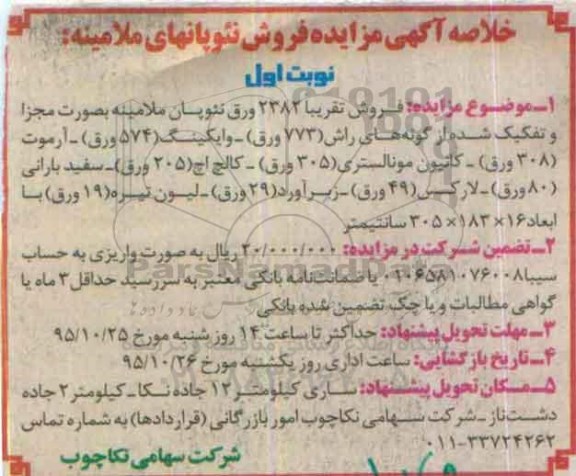 خلاصه آگهی مزایده فروش نئوپانهای ملامینه:
نوبت اول
۱ـ موضوع مزایده: فروش تقریبا ۲۳۸۲ ورق نئوپان ملامینه بصورت مجزا
و تفکیک شده از گونه‌های راش(۷۷۳ ورق) ـ وایکینگ(۵۷۴ ورق) ـ آرموت
(۳۰۸ ورق) ـ کاتیون مونالستری(۳۰۵ ورق) ـ کالج اچ(۲۰۵ ورق) ـ سفید بارانی
(۸۰ ورق) ـ لارکس(۴۹ ورق) ـ زبرآورد(۲۹ ورق) ـ لیون تیره(۱۹ ورق) با
ابعاد ۱۶×۱۸۳×۳۰۵ سانتیمتر
۲ـ تضمین شرکت در مزایده: ۲۰/۰۰۰/۰۰۰ ریال به صورت واریزی به حساب
سیبا یا ضمانت‌نامه بانکی معتبر به سررسید حداقل ۳ ماه یا
گواهی مطالبات و یا چک تضمین شده بانکی
۳ـ مهلت تحویل پیشنهاد: حداکثر تا ساعت ۱۴ روز شنبه مورخ ۹۵/۱۰/۲۵
۴ـ تاریخ بازگشایی: ساعت اداری روز یکشنبه مورخ ۹۵/۱۰/۲۶
۵ـ مکان تحویل پیشنهاد: ساری کیلومتر ۱۲ جاده نکا ـ کیلومتر ۲ جاده
دشت‌ناز ـ شرکت سهامی نکاچوب امور بازرگانی (قراردادها) به شماره تماس
۰۱۱-۳۳۷۲۴۲۶۲
شرکت سهامی نکاچوب